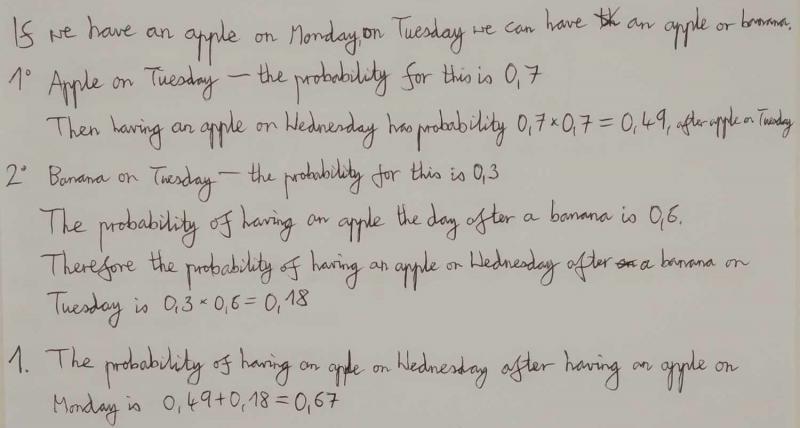 If we have an apple on Monday, on Tuesday we can have an apple or banana.
1° Apple on Tuesday – the probability for this is 0,7
Then having an apple on Wednesday has probability 0,7×0,7 = 0,49, after apple on Tuesday
2° Banana on Tuesday – the probability for this is 0,3
The probability of having an apple the day after a banana is 0,6.
Therefore the probability of having an apple on Wednesday after a banana on
Tuesday is 0,3 × 0,6 = 0,18
1. The probability of having an apple on Wednesday after having an apple on
Monday is 0,49+0,18 = 0,67